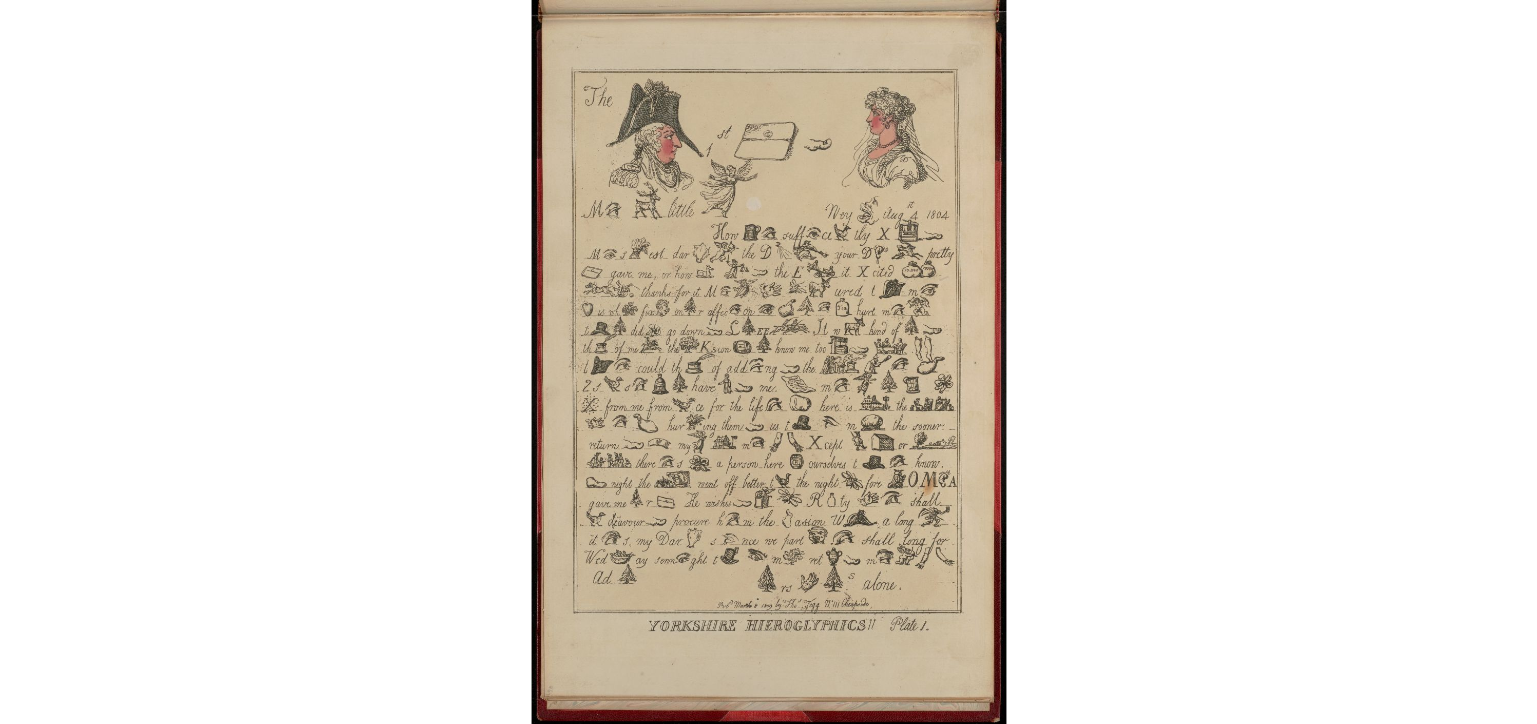 The
1 st
M little Wey Aug 4 1804
How suff ce tly X
M s est dar the D your D pretty
gave me, or how the E it X cited
thanks for it M ured t m
is in r affec on hurt m
t did go down L It w kind of
th of me the K s ion know me too
t could th of add ng the
2 s s have me. m
from me from ce for the life here is the
hur ing them us t m the sooner
return my m X cept or
there s a person here ourselves t know.
night the ment off better t the night fore OM A
gave me r He wishes R ty shall
deavour procure h m the assion W a long
it s, my Dar s nce we part shall long for
Wed ay senn ght t m ret m
Ad rs s alone.
YORKSHIRE HIEROGLYPHICS!! Plate 1.